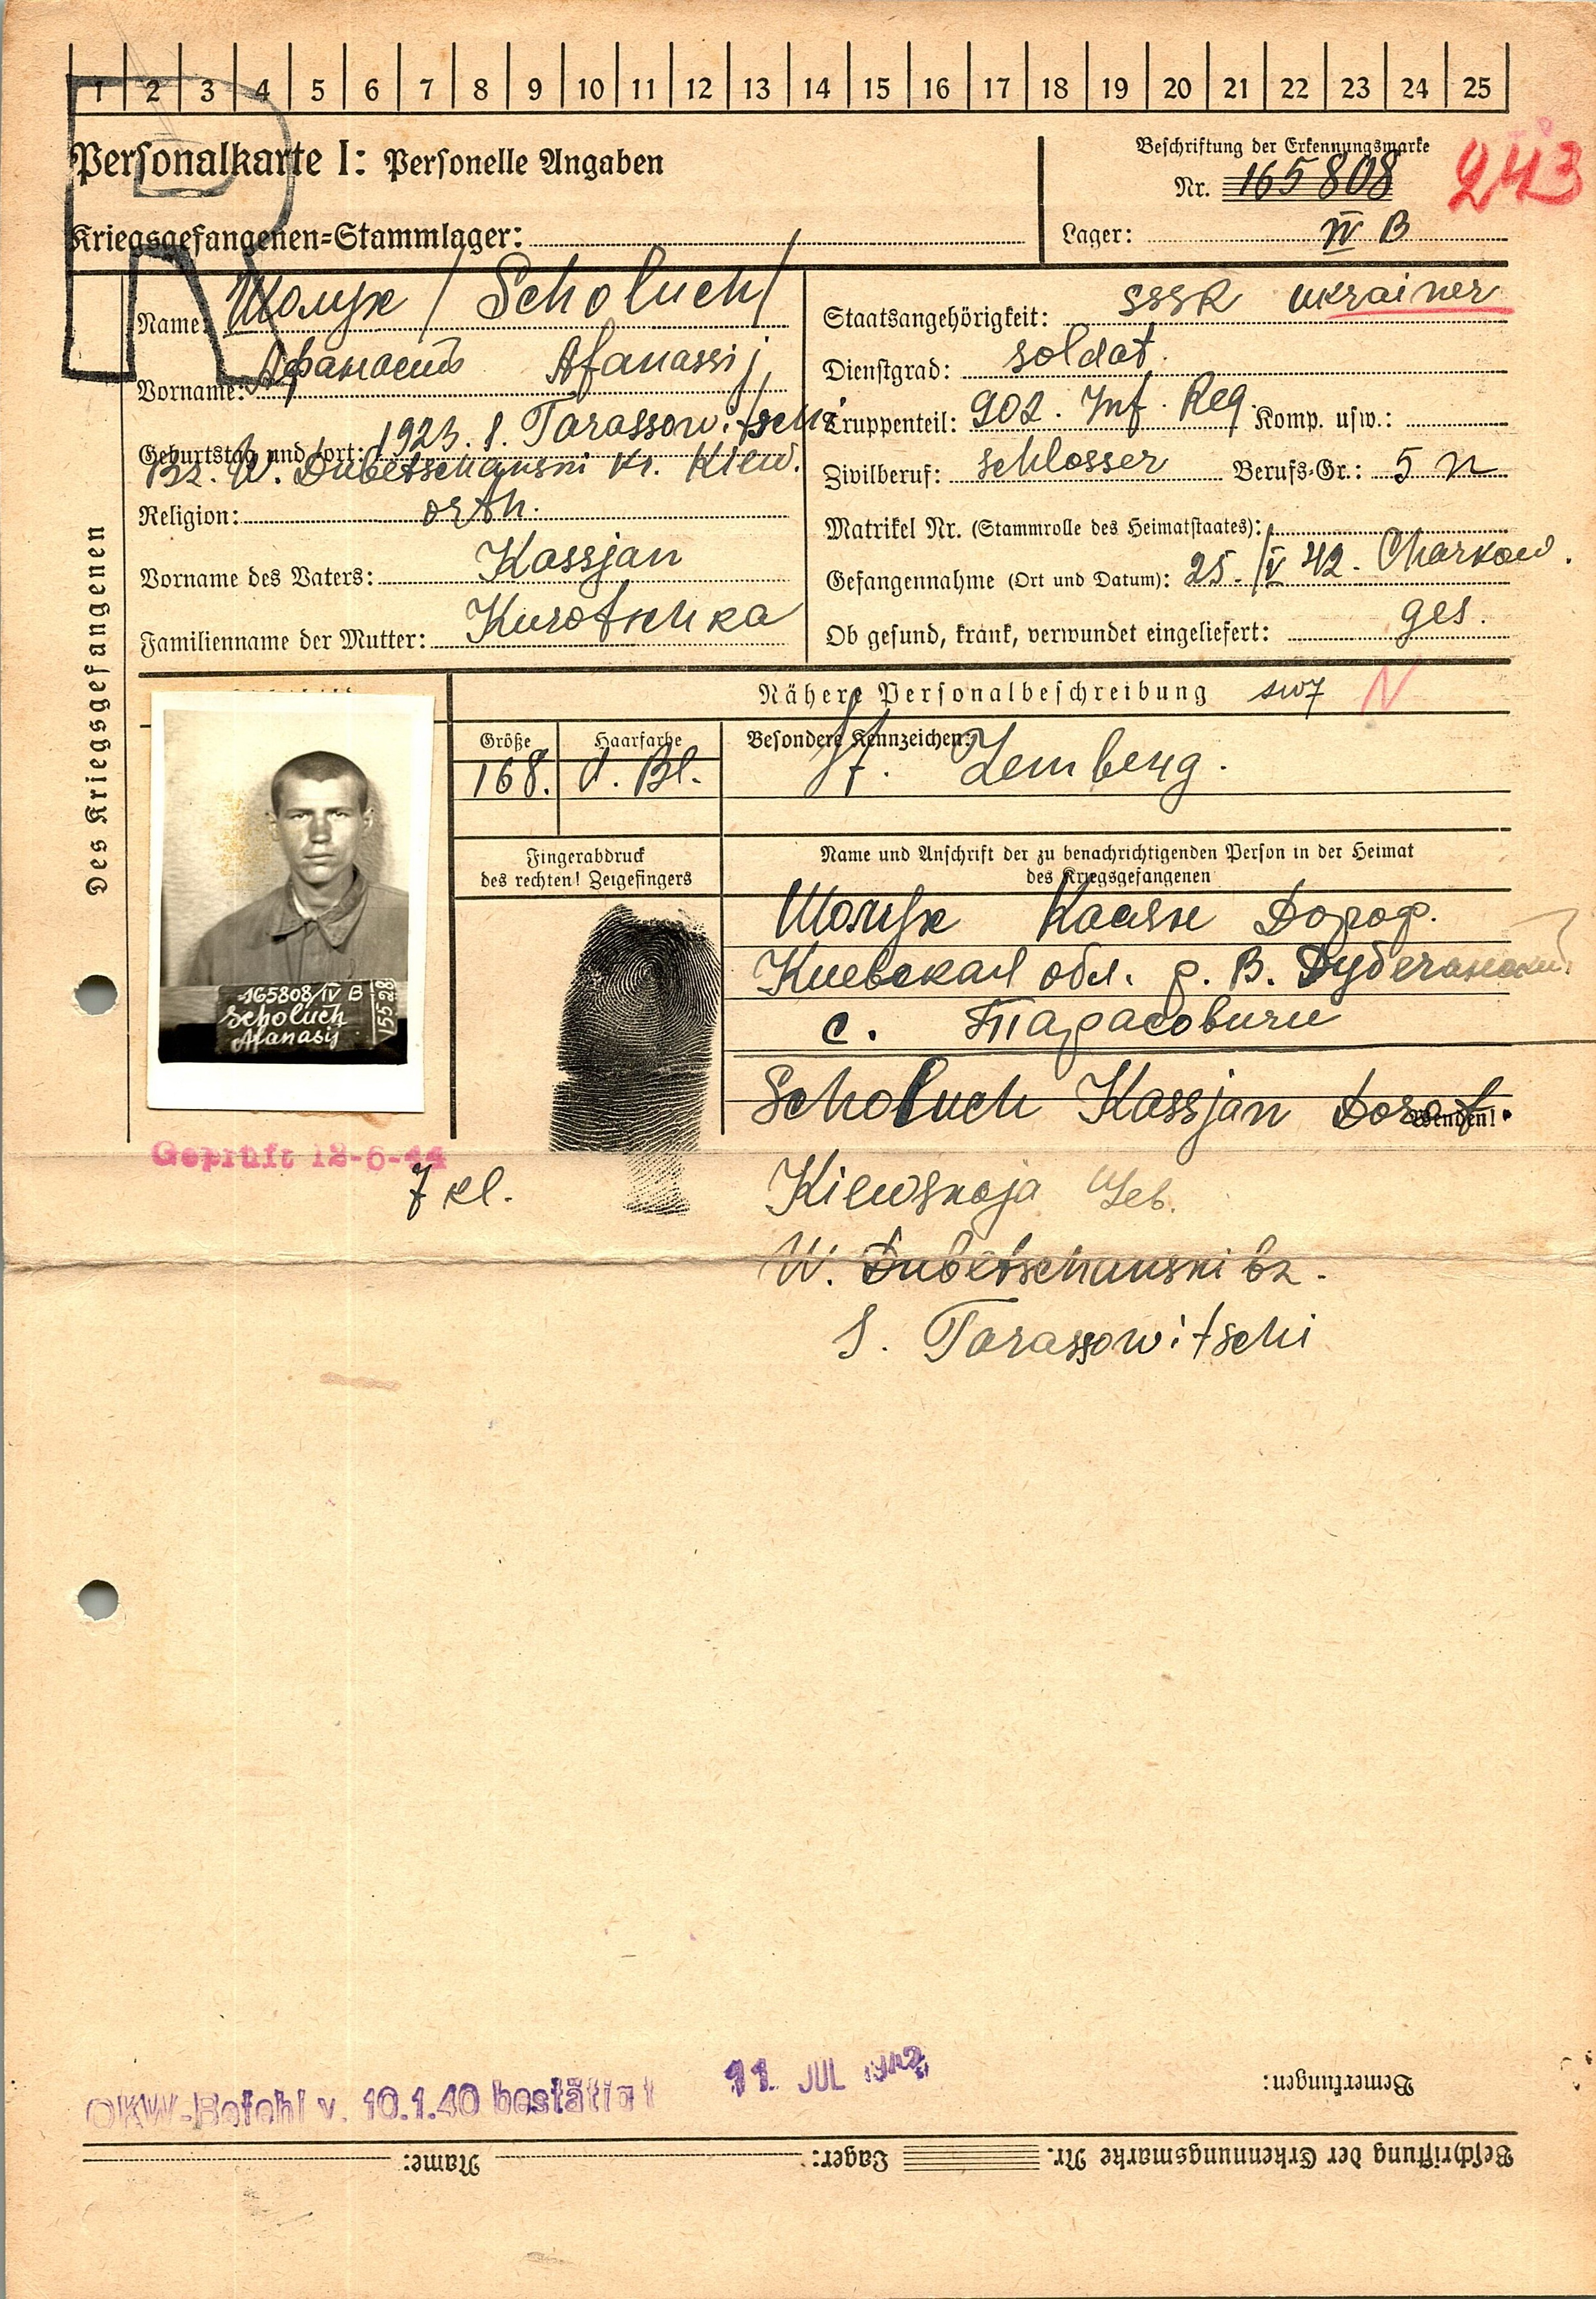 1 2 3 4 5 6 7 8 9 10 11 12 13 14 15 16 17 18 19 20 21 22 23 24 25
Personalkarte I: Personelle Angaben
Kriegsgefangenen=Stammlager:
Beschriftung der Erkennungsmarke
Nr. 165808
243
Lager: IV B
Des Kriegsgefangenen
Name: Шолух / Scholuch /
Vorname: Афанасий Afanassij
Geburtstag und =ort: 1923. S. Tarassowitschi
Bz. W. Dubetschanski Kr. Kiew.
Religion: orth.
Vorname des Vaters: Kassjan
Familienname der Mutter: Kurotschka
Staatsangehörigkeit: SSSR Ukrainer
Dienstgrad: Soldat.
Truppenteil: 902. Inf. Reg. Komp. usw.:
Zivilberuf: Schlosser Berufs-Gr.: 5 n
Matrikel Nr. (Stammrolle des Heimatstaates):
Gefangennahme (Ort und Datum): 25. /V 42. Charkow.
Ob gesund, krank, verwundet eingeliefert: ges.
Nähere Personalbeschreibung N
Größe Haarfarbe Besondere Kennzeichen:
168. d. Bl. St. Lemberg.
Fingerabdruck
des rechten! Zeigefingers
Name und Anschrift der zu benachrichtigenden Person in der Heimat
des Kriegsgefangenen
Шолух Дороф.
Киевская обл. р. В. Дубечанский
с. Тарасовичи
Scholuch Kassjan Dorof.
Wenden!
Kiewskaja Geb.
W. Dubetschanski bz.
S. Tarassowitschi
165808/IV B
Scholuch
Afanasij
V5528
Geprüft 12-6-44
7 kl.
OKW-Befehl v. 10.1.40 bestätigt
11. JUL 1942
Bemerkungen:
Beschriftung der Erkennungsmarke Nr. Lager: Name: